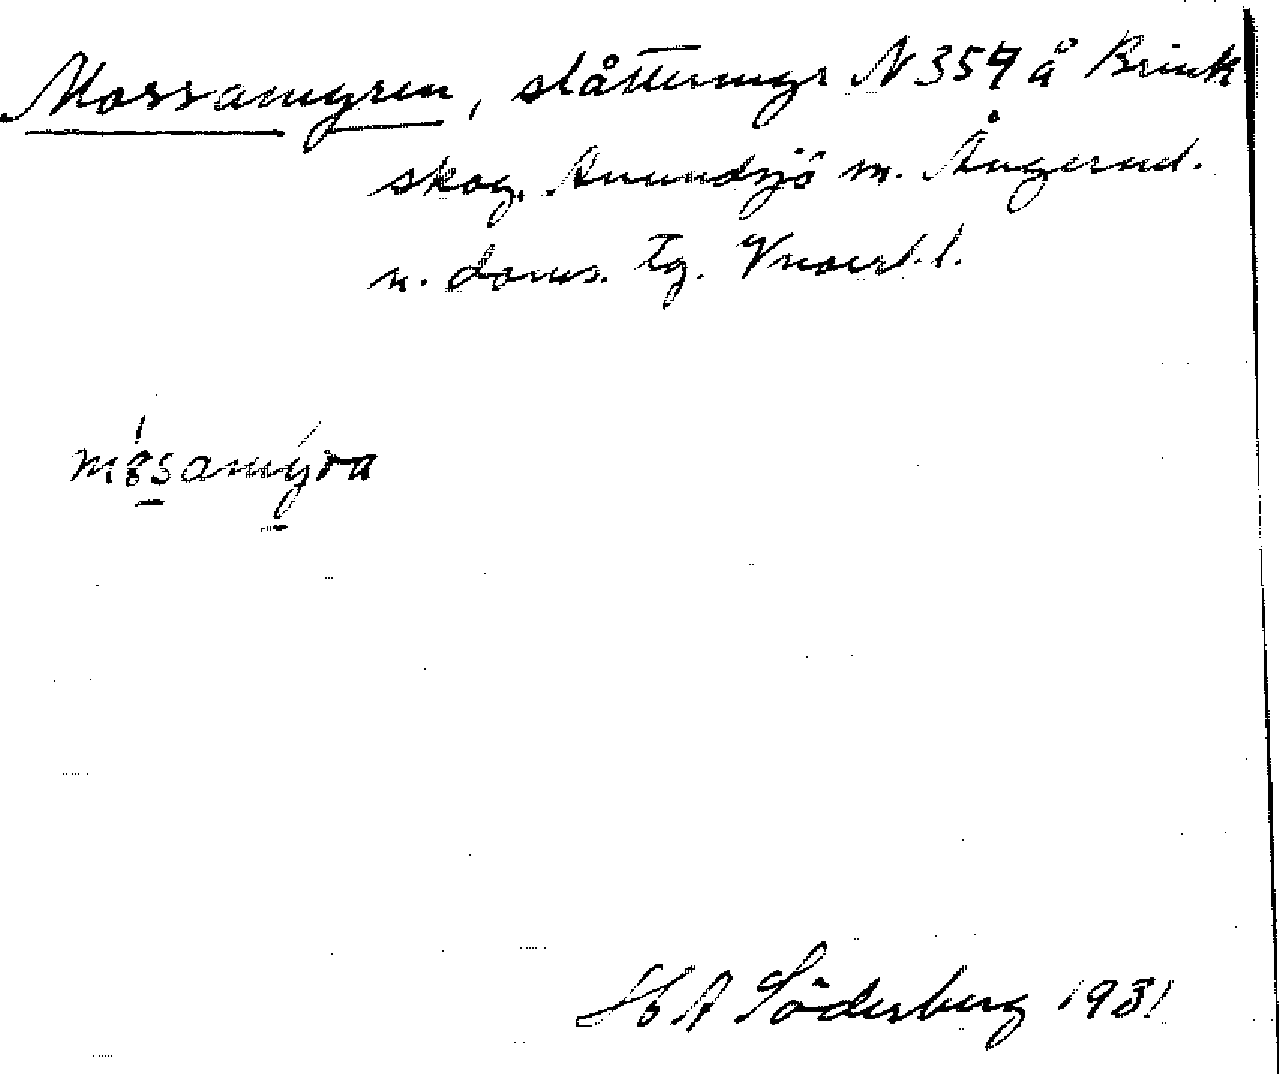 Mossamyren, slåttermyr N 357 å Brink
skog, Anundsjö sn. Ångerml.
n. doms. tg. Vnorrl. l.
mȯsamýra
H A Söderberg 1931